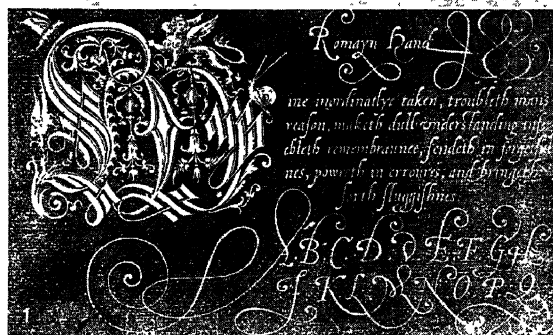 Romayn hand
W
ine inordinatlye taken, troubleth mans
reaſon, maketh dull vnderstanding infe
ebleth remembraunce, ſendeth in forgetful
nes, powreth in erroures, and bringeth
forth ſluggiſhnes
A.B.C.D.V.E.F.G.H
I.K.L.M.N.O.P.Q
1